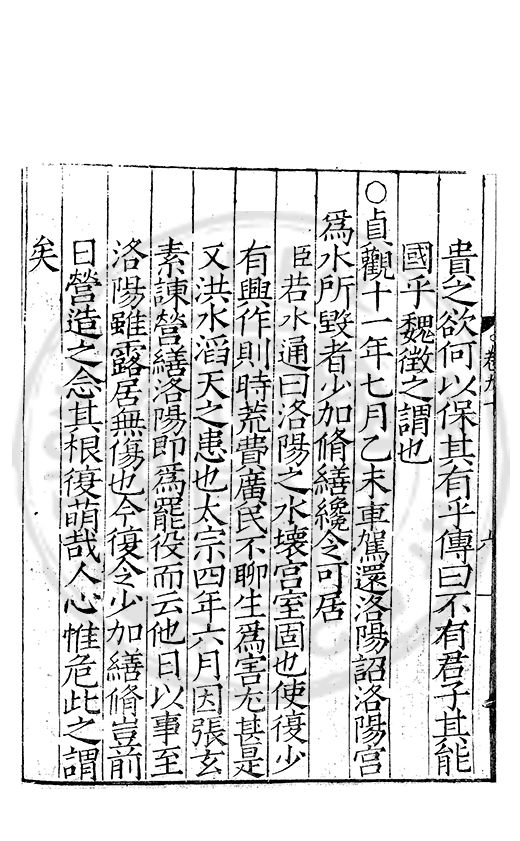 貴之欲何以保其有乎傳曰不有君子其能
國乎魏徵之謂也
○貞觀十一年七月乙未車駕還洛陽詔洛陽宮
爲水所毀者少加脩繕纔令可居
臣若水通曰洛陽之水壞宮室固也使復少
有興作則時荒費廣民不聊生爲害尢甚是
又洪水滔天之患也太宗四年六月因張玄
素諫營繕洛陽即爲罷役而云他日以事至
洛陽雖露居無傷也今復令少加繕脩豈前
日營造之念其根復萌哉人心惟危此之謂
矣
卷九十